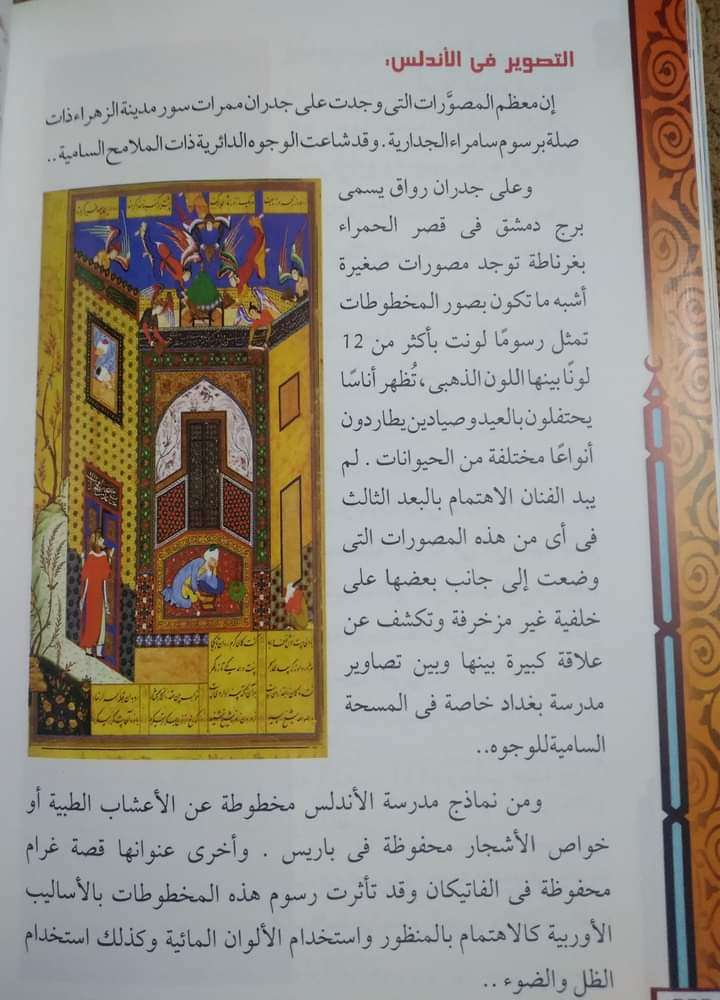 التصوير فى الأندلس:
إن معظم المصوَّرات التى وجدت على جدران ممرات سور مدينة الزهراء ذات
صلة برسوم سامراء الجدارية . وقد شاعت الوجوه الدائرية ذات الملامح السامية ..
وعلى جدران رواق يسمى
برج دمشق فى قصر الحمراء
بغرناطة توجد مصورات صغيرة
أشبه ما تكون بصور المخطوطات
تمثل رسومًا لونت بأكثر من 12
لونًا بينها اللون الذهبى ، تُظهر أناسًا
يحتفلون بالعيد و صيادين يطاردون
أنواعًا مختلفة من الحيوانات . لم
يبد الفنان الاهتمام بالبعد الثالث
فى أى من هذه المصورات التى
وضعت إلى جانب بعضها على
خلفية غير مزخرفة وتكشف عن
علاقة كبيرة بينها وبين تصاوير
مدرسة بغداد خاصة فى المسحة
السامية للوجوه..
ومن نماذج مدرسة الأندلس مخطوطة عن الأعشاب الطبية أو
خواص الأشجار محفوظة فى باريس . وأخرى عنوانها قصة غرام
محفوظة فى الفاتيكان وقد تأثرت رسوم هذه المخطوطات بالأساليب
الأوربية كالاهتمام بالمنظور واستخدام الألوان المائية وكذلك استخدام
الظل والضوء ..